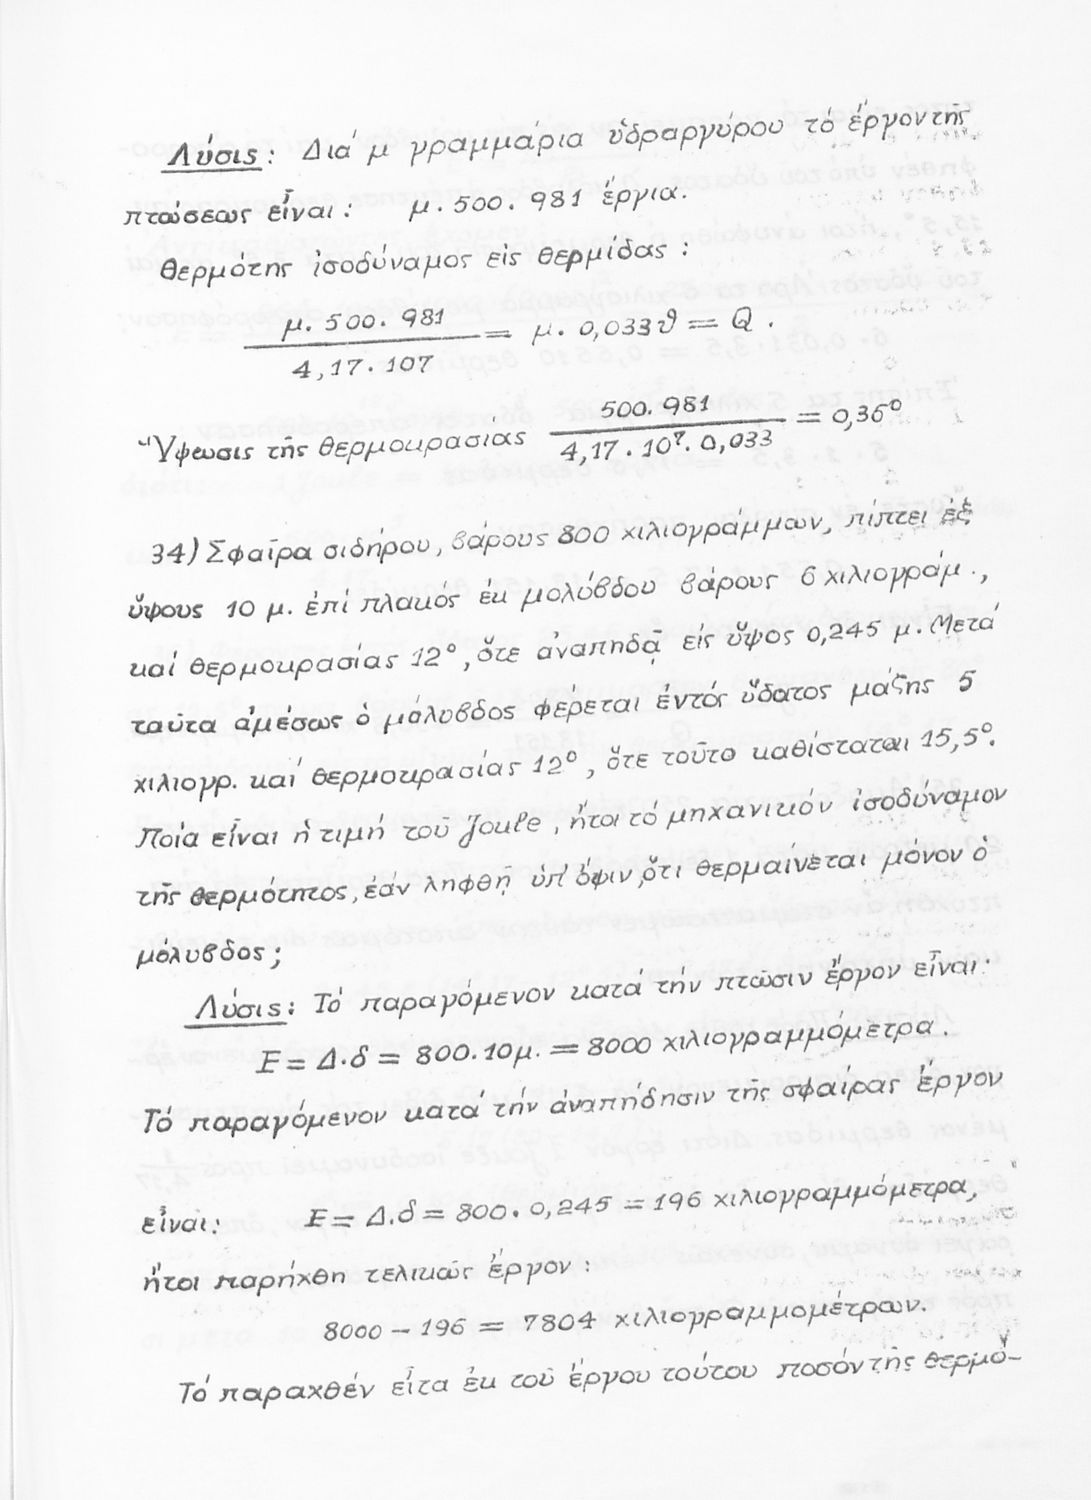 Λύσις: Διά μ γραμμάρια ὑδραργύρου τό ἔργον τῆς
πτώσεως εἶναι: μ. 500. 981 ἔργια.
θερμότης ἰσοδύναμος εἰς θερμίδας:
μ. 500. 981 / 4,17. 107 = μ. 0,033θ = Q.
Ὕψωσις τῆς θερμοκρασίας 500. 981 / 4,17. 10⁷. 0,033 = 0,36°
34) Σφαῖρα σιδήρου, βάρους 800 χιλιογράμμων, πίπτει ἐξ
ὕψους 10 μ. ἐπί πλακός ἐκ μολύβδου βάρους 6 χιλιογράμ.,
καί θερμοκρασίας 12°, ὅτε ἀναπηδᾷ εἰς ὕψος 0,245 μ. Μετά
ταῦτα ἀμέσως ὁ μόλυβδος φέρεται ἐντός ὕδατος μάζης 5
χιλιογρ. καί θερμοκρασίας 12°, ὅτε τοῦτο καθίσταται 15,5°.
Ποία εἶναι ἡ τιμή τοῦ Joule, ἤτοι τό μηχανικόν ἰσοδύναμον
τῆς θερμότητος, ἐάν ληφθῇ ὑπ' ὄψιν, ὅτι θερμαίνεται μόνον ὁ
μόλυβδος;
Λύσις: Τό παραγόμενον κατά τήν πτῶσιν ἔργον εἶναι:
E = Δ.δ = 800. 10μ. = 8000 χιλιογραμμόμετρα.
Τό παραγόμενον κατά τήν ἀναπήδησιν τῆς σφαίρας ἔργον
εἶναι: E = Δ.δ = 800. 0,245 = 196 χιλιογραμμόμετρα,
ἤτοι παρήχθη τελικῶς ἔργον:
8000 - 196 = 7804 χιλιογραμμομέτρων.
Τό παραχθέν εἶτα ἐκ τοῦ ἔργου τούτου ποσόν τῆς θερμό-